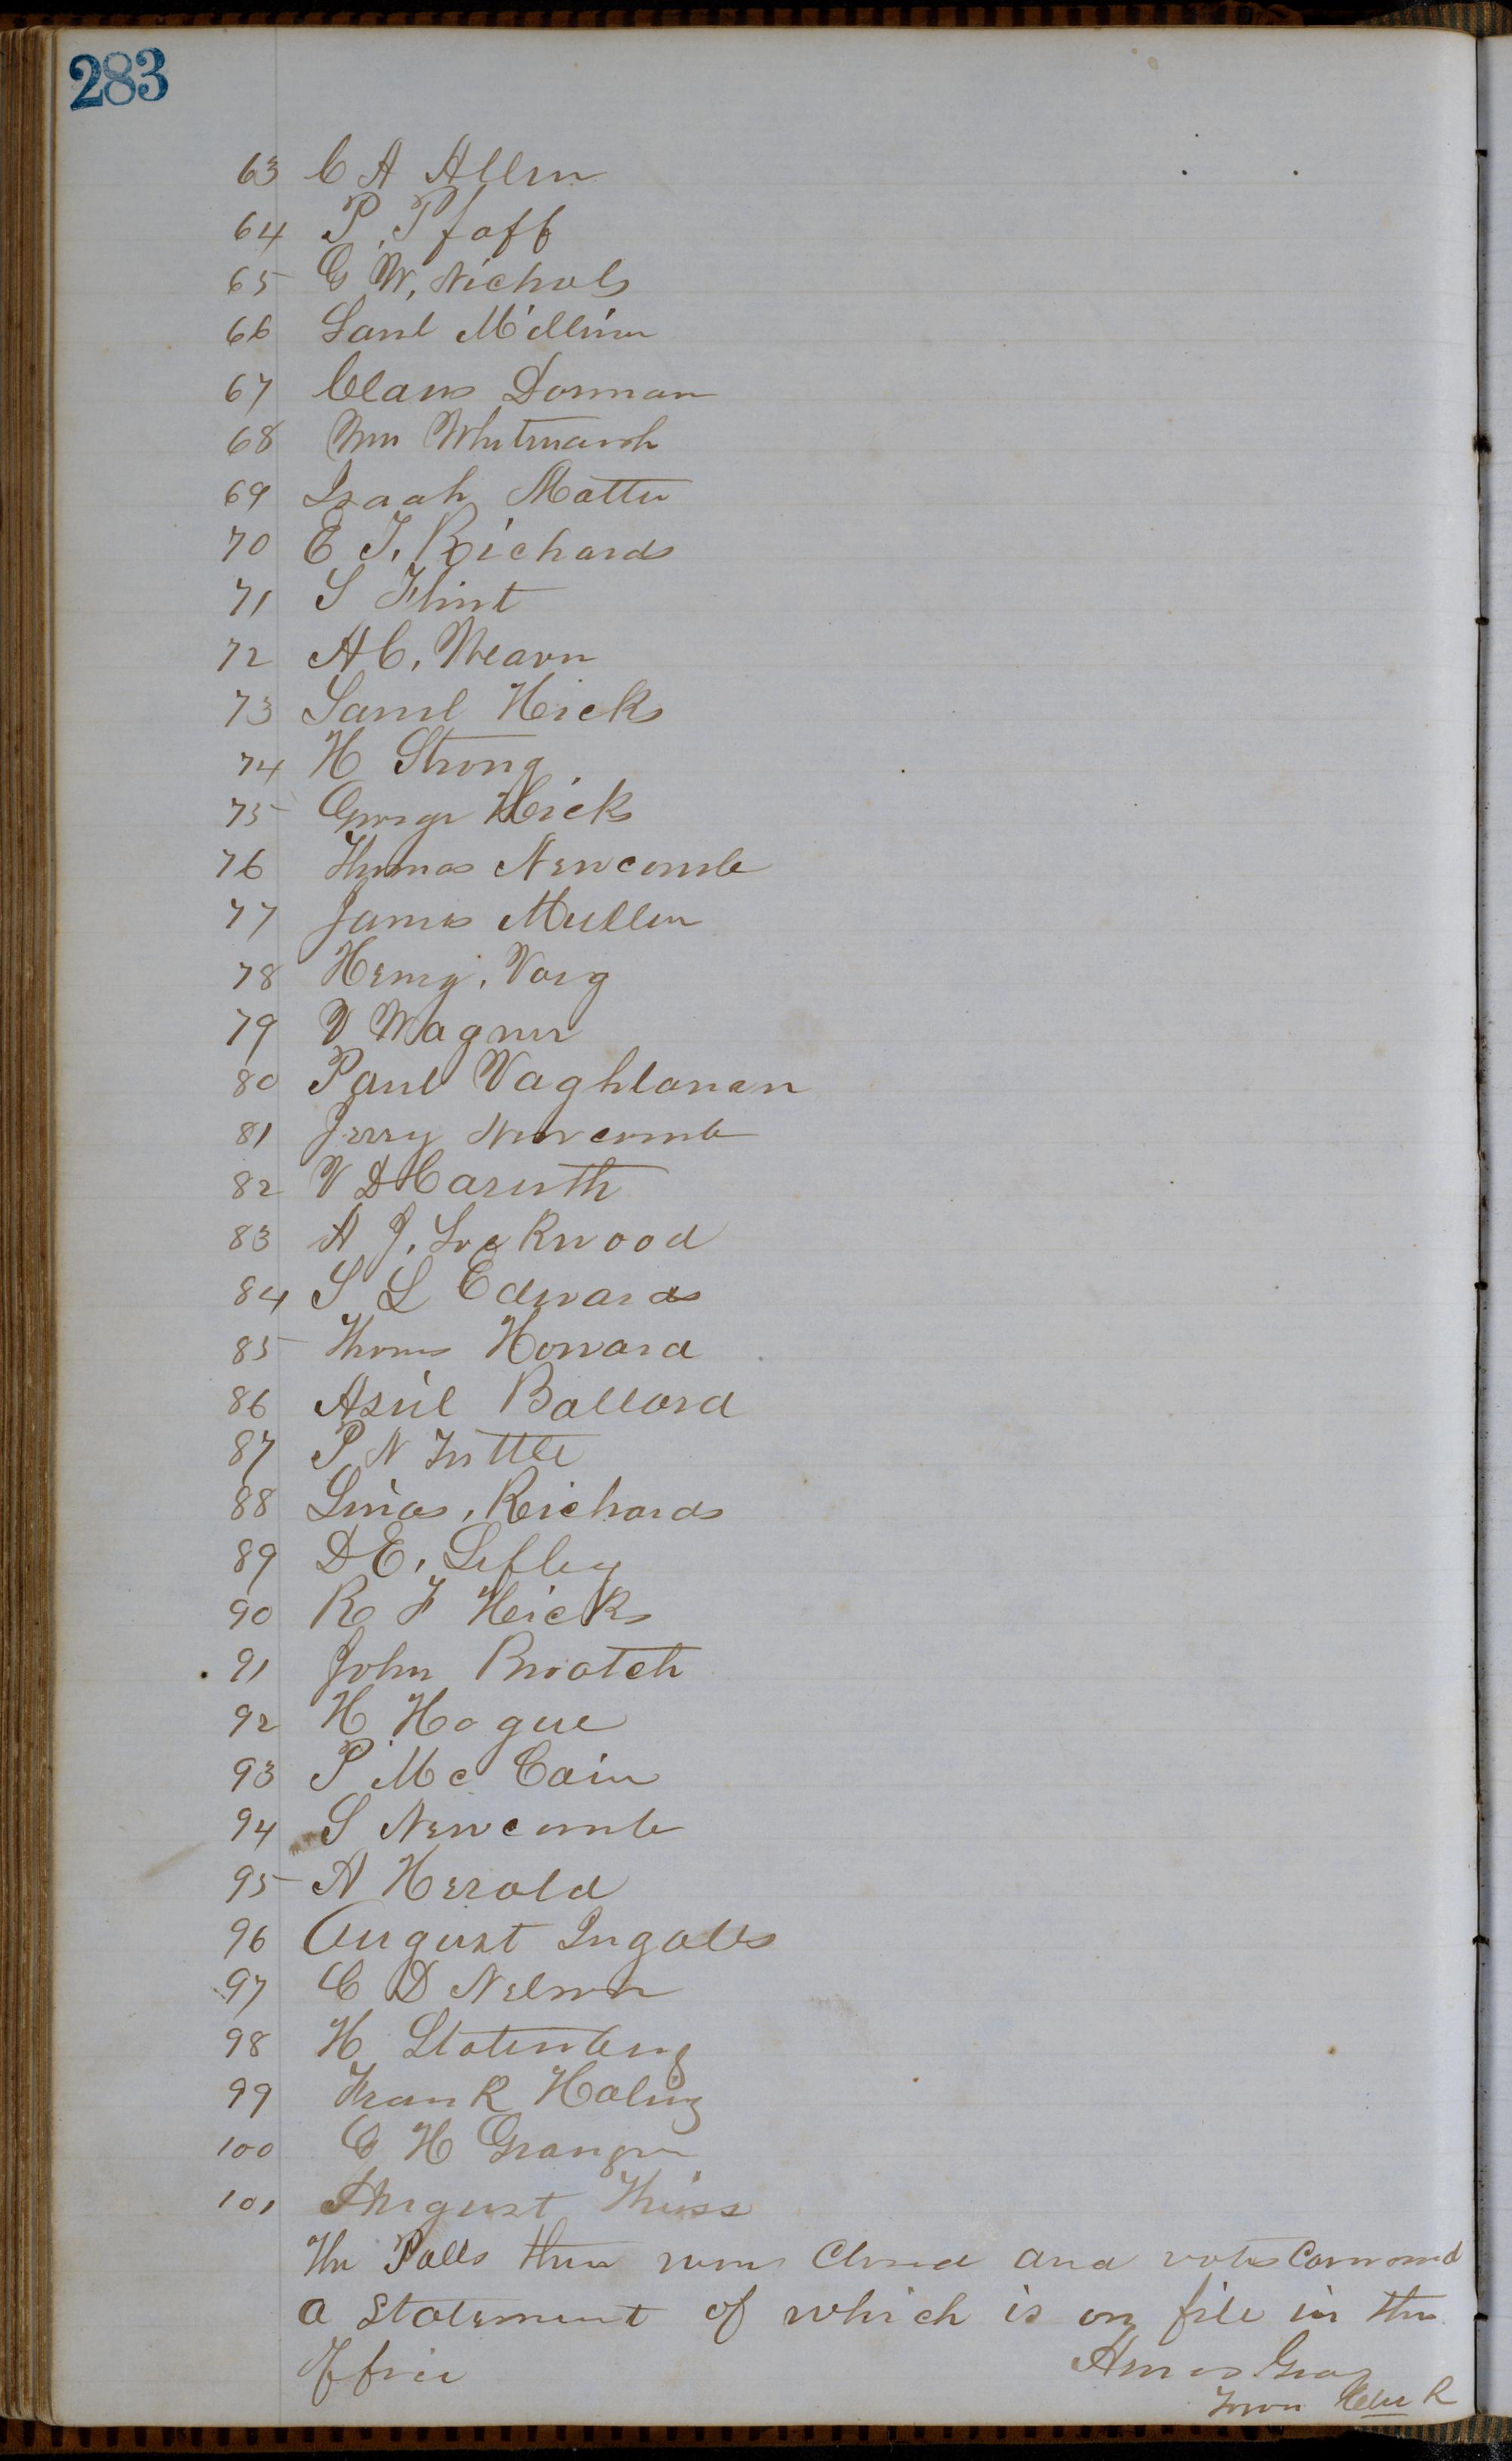 283
63 C A Allen
64 P. Pfaff
65 G W. Nichols
66 Saml Millim
67 Claus Dorman
68 Wm Whitmarsh
69 Isaah Matter
70 E T. Richards
71 S Flint
72 A C. Wearn
73 Saml Hicks
74 H Strong
75 George Hicks
76 Thomas Newcomb
77 James Mullen
78 Henry. Varg
79 V Wagner
80 Paul Vaghlanan
81 Jerry Newcomb
82 V D Caruth
83 A J. Lockwood
84 S L Edwards
85 Thoms Howard
86 Asiel Ballard
87 P N Tuttle
88 Linas. Richards
89 D E. Lefley
90 R F Hicks
91 John Broatch
92 H Hague
93 P Mc Cain
94 S Newcomb
95 A Herald
96 August Ingalls
97 C D Nelson
98 H Statenberg
99 Frank Haling
100 C H Granger
101 August Thiss
The Polls then were Closed and votes Canvassed
a Statement of which is on file in this
Office Amos Gray
Town Clerk